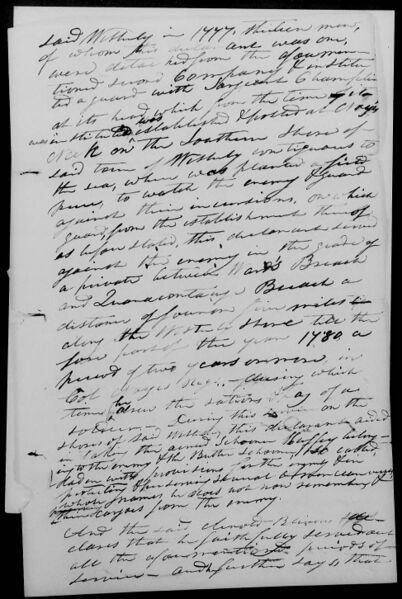 said Westerly in 1777. thirteen men,
of whom this declarant was one,
were detached from the aforemen-
tioned second Company & constitu-
ted a guard with Sargeant Champlin
at its head which from the time
was instituted was established & posted at
Neck on the Southern Shore of
said town of Westerly contiguous to
the sea, where was planted a field
piece, to watch the enemy & guard
against their incursions, on which
guard, from the establishment thereof
as before stated, this declarant served
against the enemy in the grade of
a private between Ward's Beach
and Quonacontaug Beach a
distance of four or five miles
along the Westerly shore till the
fore part of the year 1780, a
period of two years or more, in
Col. Reg. — during which
time he drew the rations &c of a
soldier — During this service on the
shores of said Westerly this declarant aided
in taking the armed Schooner belong-
ing to the enemy & the Schooner, so called,
laden with provisions for the enemy & in
protecting & preserving several American vessels
whose names he does not now remember &
their cargoes from the enemy.
And the said Barns de-
clares that he faithfully served out
all the aforementioned periods of
service — and further says that